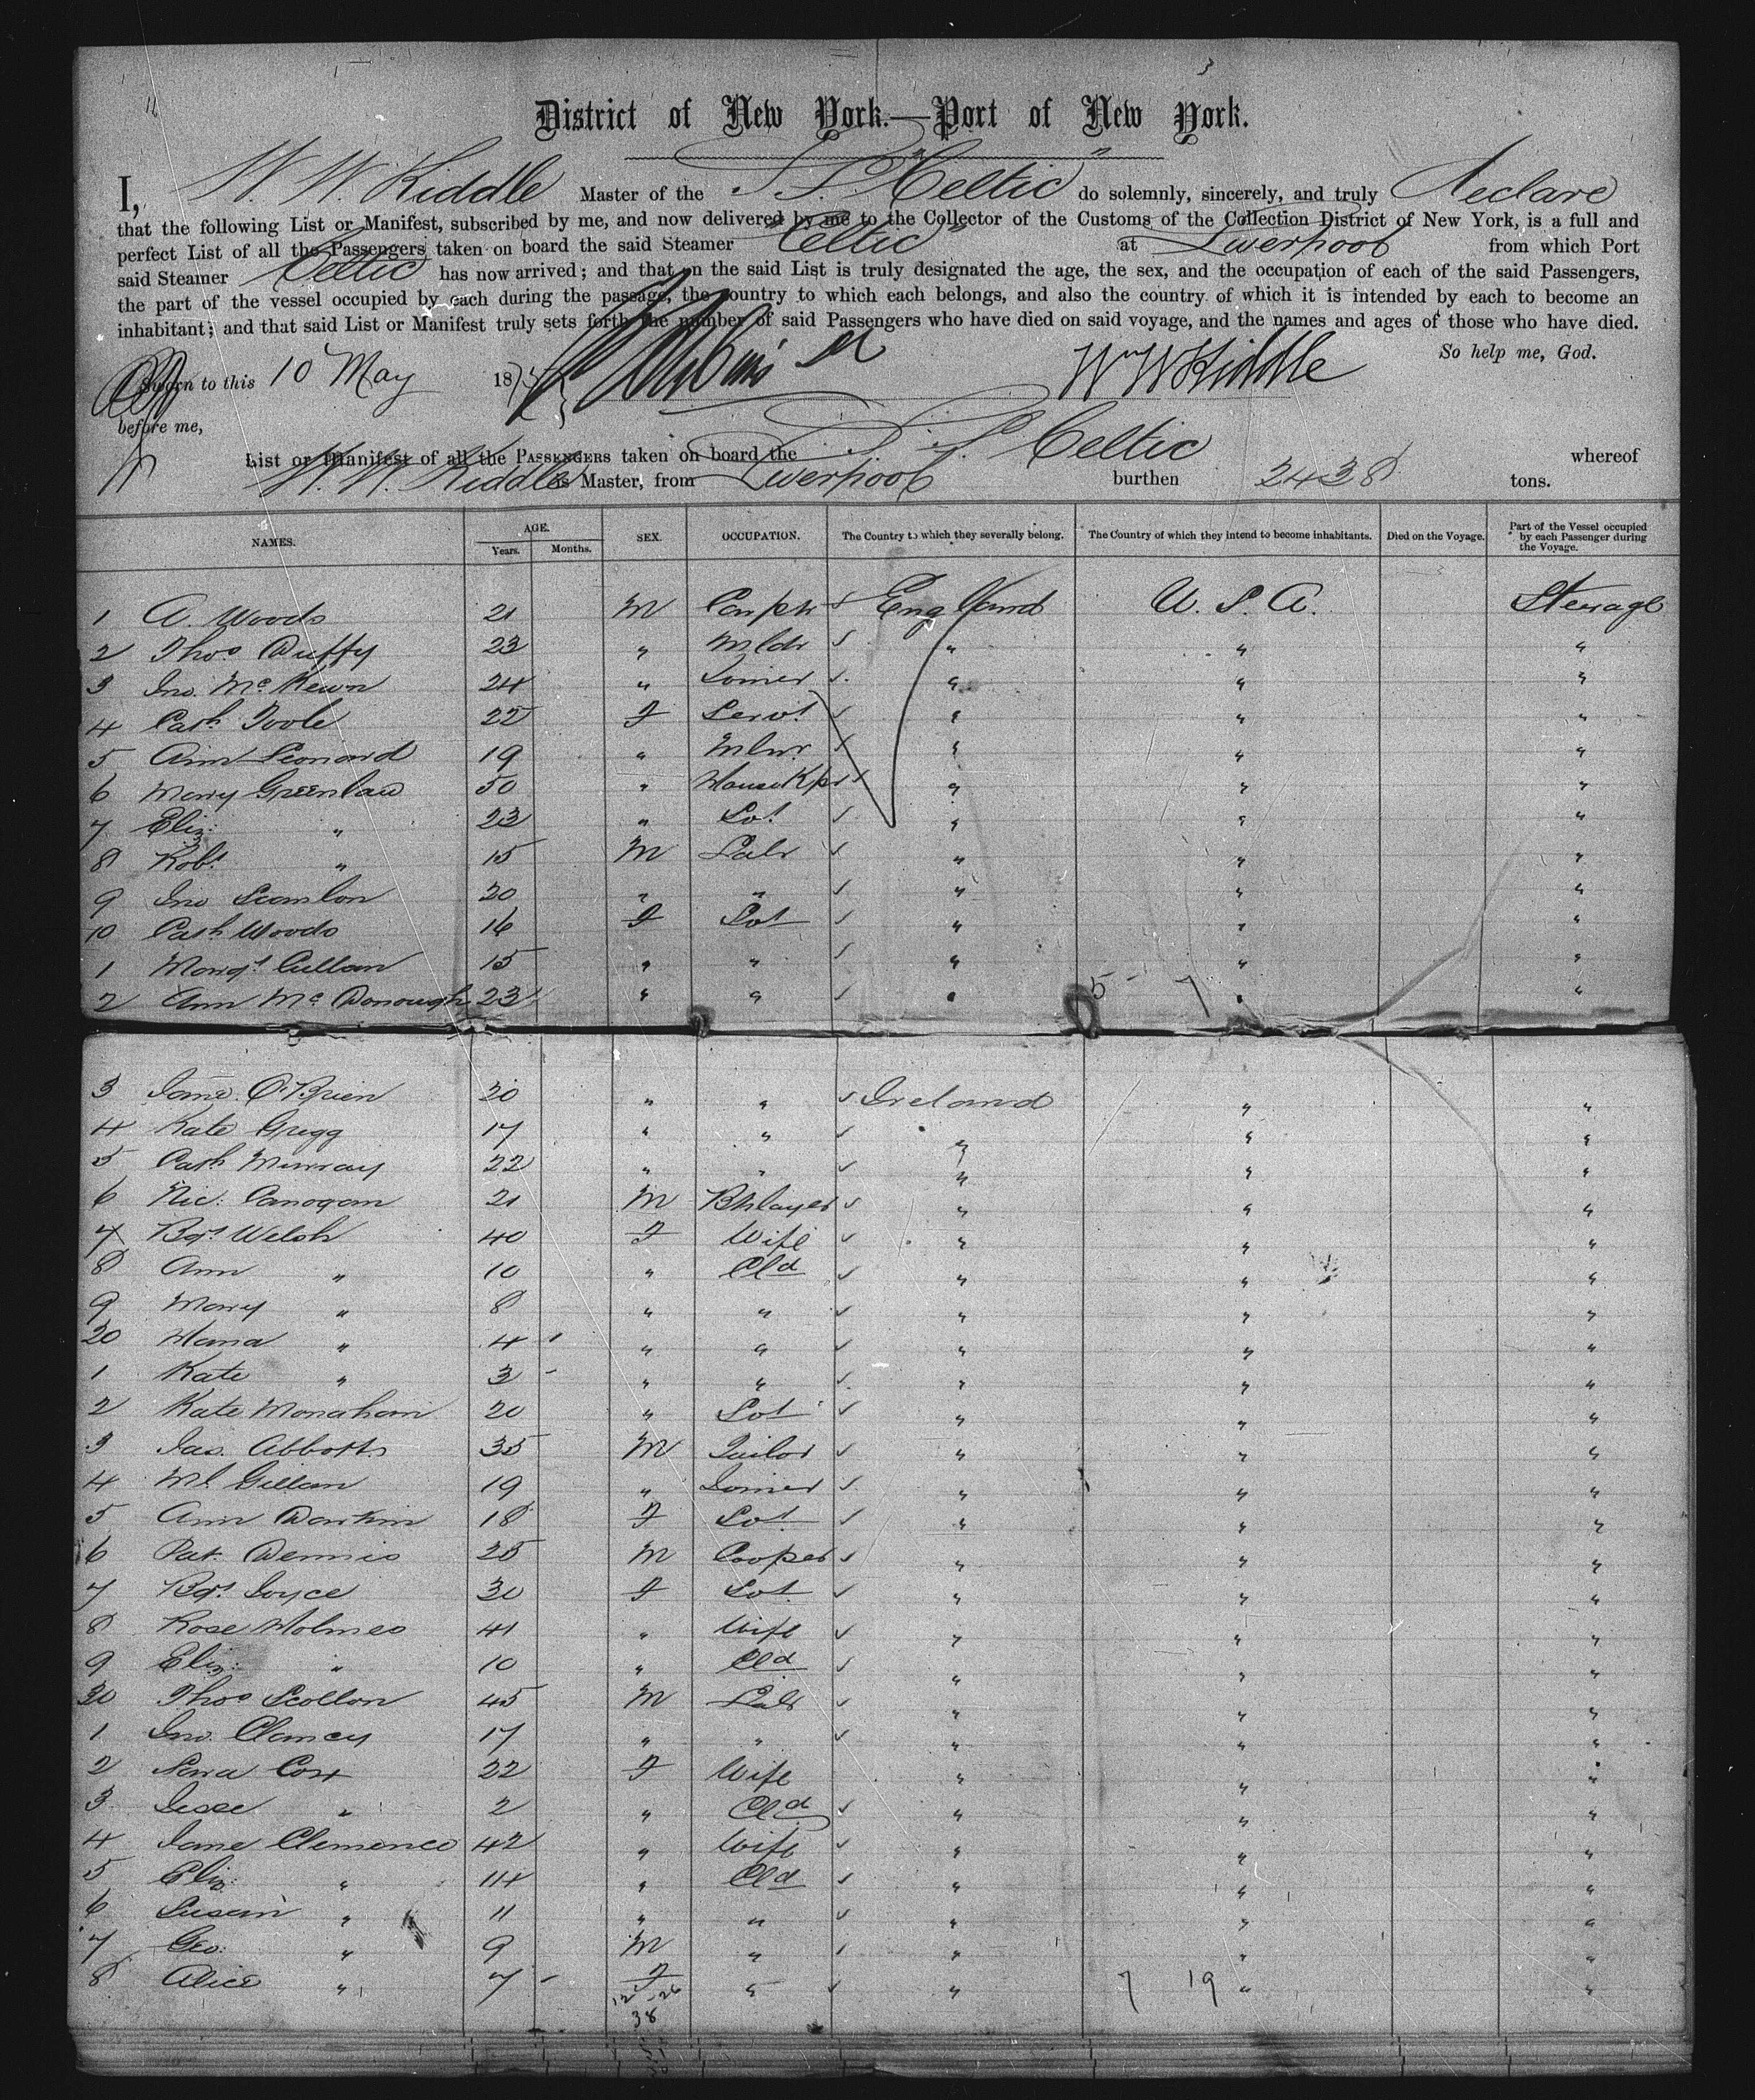 3
District of New York.—Port of New York.
I, W. W. Kiddle Master of the S. S. "Celtic" do solemnly, sincerely, and truly declare
that the following List or Manifest, subscribed by me, and now delivered by me to the Collector of the Customs of the Collection District of New York, is a full and
perfect List of all the Passengers taken on board the said Steamer "Celtic" at Liverpool from which Port
said Steamer Celtic has now arrived; and that on the said List is truly designated the age, the sex, and the occupation of each of the said Passengers,
the part of the vessel occupied by each during the passage, the country to which each belongs, and also the country of which it is intended by each to become an
inhabitant; and that said List or Manifest truly sets forth the number of said Passengers who have died on said voyage, and the names and ages of those who have died.
So help me, God.
Sworn to this 10 May 1875 Wm W Kiddle
before me,
List or Manifest of all the PASSENGERS taken on board the S. S. Celtic whereof
W. W. Kiddle is Master, from Liverpool burthen 2438 tons.
NAMES. AGE. Years. Months. SEX. OCCUPATION. The Country to which they severally belong. The Country of which they intend to become inhabitants. Died on the Voyage. Part of the Vessel occupied by each Passenger during the Voyage.
1 A. Woods 21 M Carptr England U. S. A. Steerage
2 Thos Duffy 23 " Mldr " " "
3 Jno. McKewn 24 " Joiner " " "
4 Cath Toole 22 F Servt " " "
5 Ann Leonard 19 " Mlnr " " "
6 Mary Greenlaw 50 " HouseKpr " " "
7 Eliz: " 23 " Svt " " "
8 Robt " 15 M Labr " " "
9 Jno Scanlon 20 " " " " "
10 Cath Woods 16 F Svt " " "
1 Margt Cullan 15 " " " " "
2 Ann McDonough 23 " " " " "
5 7
3 Jane O'Brien 20 " " Ireland " "
4 Kate Gregg 17 " " " " "
5 Cath Murray 22 " " " " "
6 Nic: Canogan 21 M Bklayer " " "
7 Bgt Welsh 40 F Wife " " "
8 Ann " 10 " Cld " " "
9 Mary " 8 " " " " "
20 Hana " 4 " " " " "
1 Kate " 3 " " " " "
2 Kate Monaham 20 " Svt " " "
3 Jas. Abbotts 35 M Tailor " " "
4 Ml Gillan 19 " Joiner " " "
5 Ann Darkin 18 F Svt " " "
6 Pat. Dennis 25 M Cooper " " "
7 Bgt Joyce 30 F Svt " " "
8 Rose Holmes 41 " Wife " " "
9 Eliz: " 10 " Cld " " "
30 Thos Scollon 45 M Labr " " "
1 Jno. Clancy 17 " " " " "
2 Sara Cox 22 F Wife " " "
3 Jesse " 2 " Cld " " "
4 Jane Clemence 42 " Wife " " "
5 Eliz: " 14 " Cld " " "
6 Susan " 11 " " " " "
7 Geo: " 9 M " " " "
8 Alice " 7 F " " " "
12 26 7 19
38